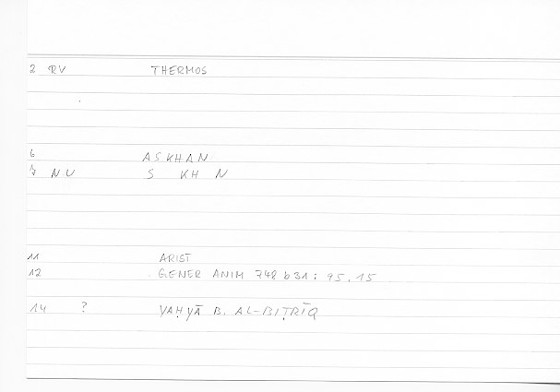 2 RV THERMOS
6 ASKHAN
7 NU S KH N
11 ARIST
12 GENER ANIM 748 b31 : 95, 15
14 ? YAḤYĀ B. AL-BIṬRĪQ